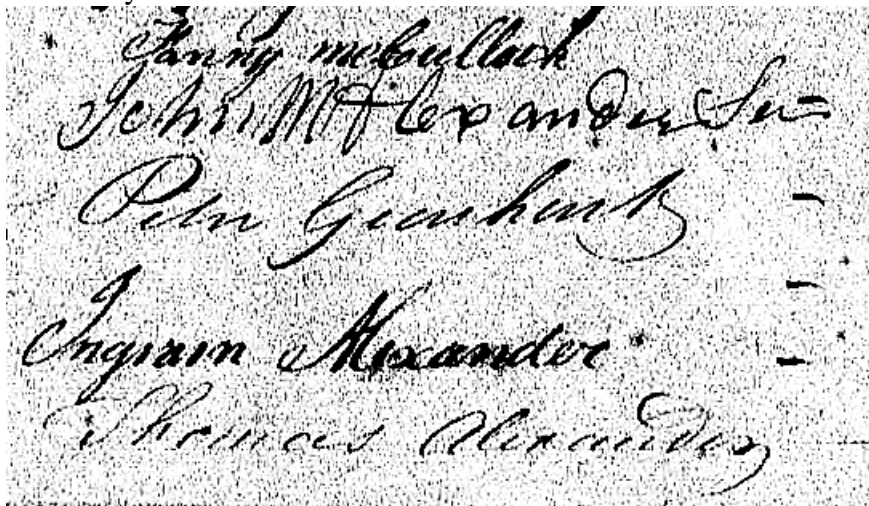 Fanny McCulloch
John M Alexander Sen
Peter Gearhart
Ingram Alexander
Thomas Alexander